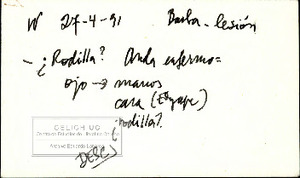 W 27-4-91 Barba - lesión
- ¿Rodilla? Anda enfermo =
ojo → manos
cara (
¿rodilla?
CELICH UC
DESC